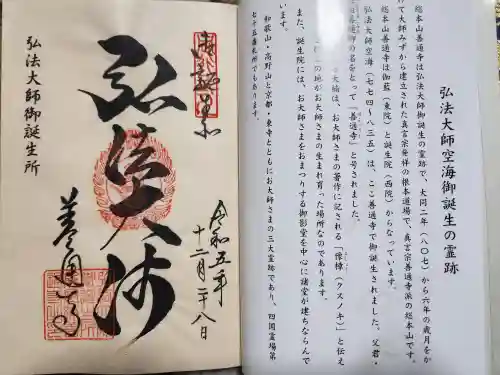 弘法大師空海御誕生の霊跡
総本山善通寺は弘法大師御誕生の霊跡で、大同二年（八〇七）から六年の歳月をか
けて大師みずから建立された真言宗発祥の根本道場で、真言宗善通寺派の総本山です。
総本山善通寺は伽藍（東院）と誕生院（西院）からなっています。
弘法大師空海（七七四～八三五）は、ここ善通寺で御誕生されました。父君・
の名をとって「善通寺」と号されました。
大楠は、お大師さまの著作に記される「豫樟（クスノキ）」と伝え
の地がお大師さまの生まれ育った場所なのであります。
また、誕生院には、お大師さまをおまつりする御影堂を中心に諸堂が建ちならんで
います。
和歌山・高野山と京都・東寺とともにお大師さまの三大霊跡であり、四国霊場第
七十五番札所でもあります。
令和五年
十二月二八日
弘法大師
善通寺
弘法大師御誕生所